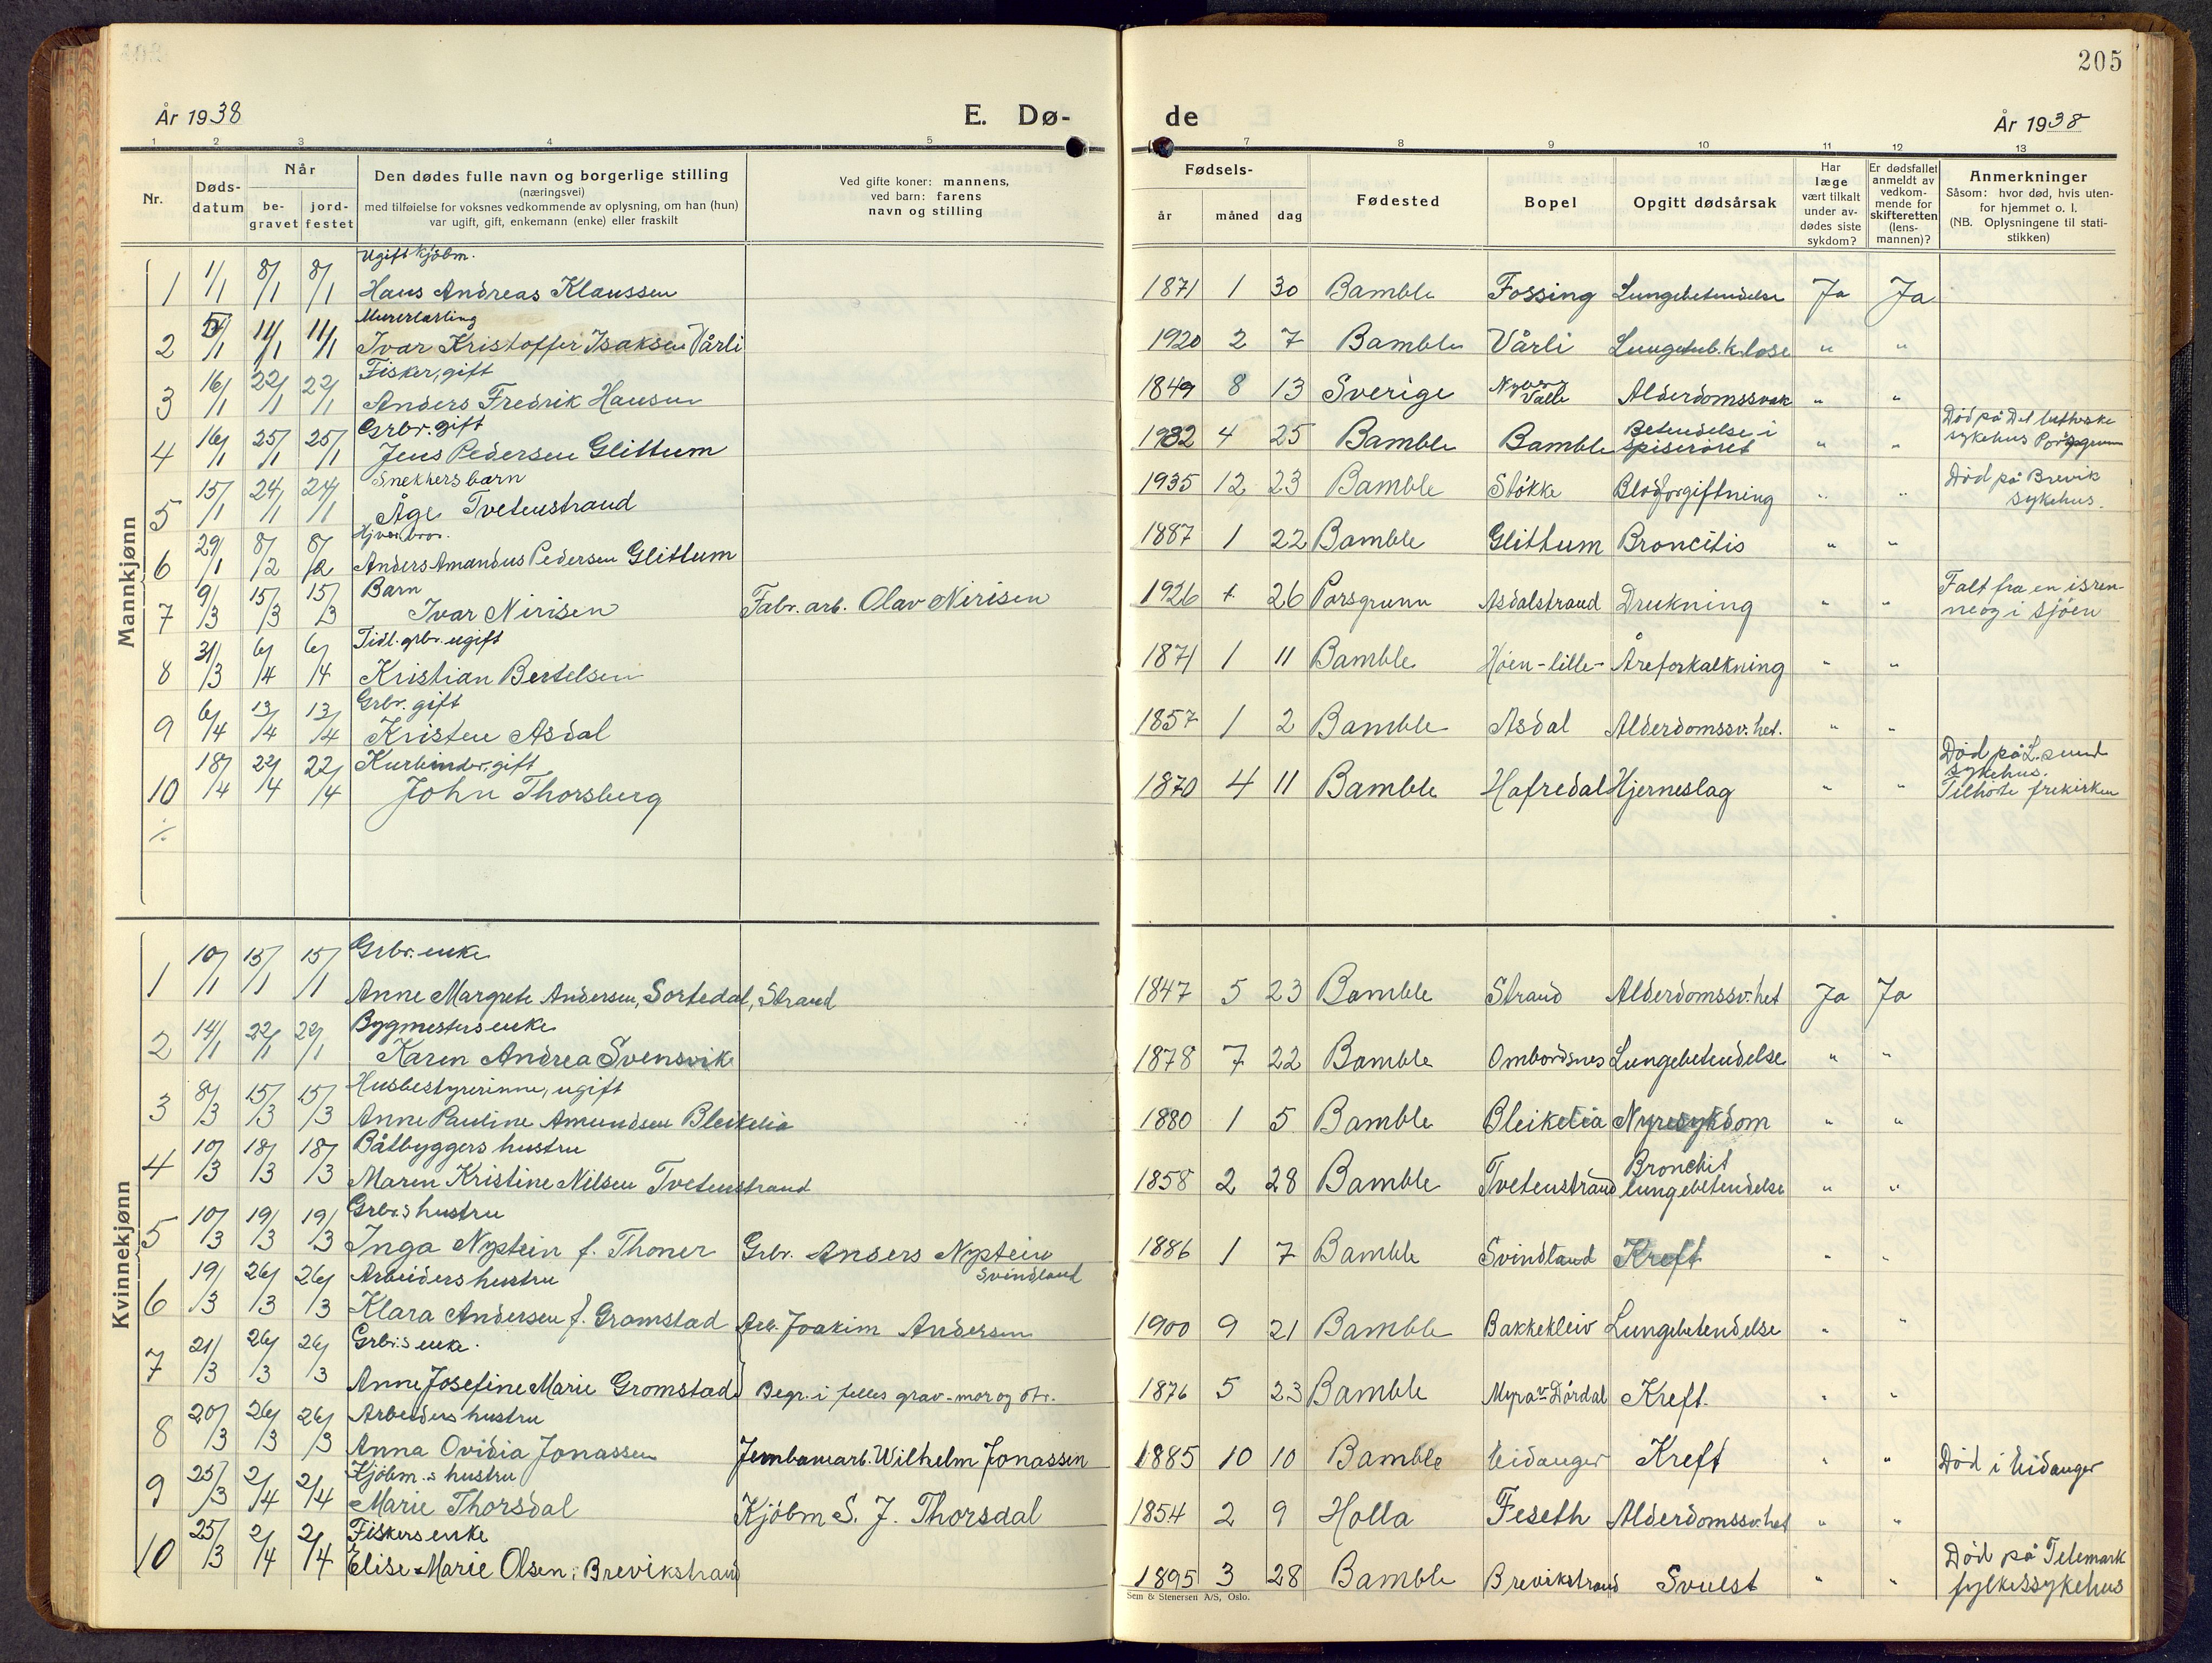 205
År 1938
E. Dø-
de
År 1938
1 2 3 4 5
7 8 9 10 11 12 13
Nr.
Døds-
datum
Når
be-
gravet
jord-
festet
Den dødes fulle navn og borgerlige stilling
(næringsvei)
med tilføielse for voksnes vedkommende av oplysning, om han (hun)
var ugift, gift, enkemann (enke) eller fraskilt
Ved gifte koner: mannens,
ved barn: farens
navn og stilling
Fødsels-
år måned dag
Fødested
Bopel
Opgitt dødsårsak
Har
læge
vært tilkalt
under av-
dødes siste
sykdom?
Er dødsfallet
anmeldt av
vedkom-
mende for
skifteretten
(lens-
mannen)?
Anmerkninger
Såsom: hvor død, hvis uten-
for hjemmet o. l.
(NB. Oplysningene til stati-
stikken)
Mannkjønn
Ugift kjøbm.
1 1/1 8/1 8/1 Hans Andreas Klaussen 1871 1 30 Bamble Fossing Lungebetendelse Ja Ja
Murerlærling
2 5/1 11/1 11/1 Ivar Kristoffer Isaksen Vårli 1920 2 7 Bamble Vårli Lungetub.k.lose " "
Fisker, gift
3 16/1 22/1 22/1 Anders Fredrik Hansen 1849 8 13 Sverige Valle Alderdomssvak " "
Grbr. gift
4 16/1 25/1 25/1 Jens Pedersen Glittum 1932 4 25 Bamble Bamble Betendelse i spiserøret " " Død på Det lutherske
sykehus Porsgrunn
Snekkers barn
5 15/1 24/1 24/1 Åge Tvetenstrand 1935 12 23 Bamble Stokke Blodforgiftning " " Død på Brevik
sykehus.
6 29/1 8/2 8/2 Anders Amandus Pedersen Glittum 1887 1 22 Bamble Glittum Broncitis " "
Barn
7 9/3 15/3 15/3 Ivar Nirisen Fabr. arb. Olav Nirisen 1926 26 Porsgrunn Asdalstrand Drukning " " Falt fra en isren-
ne og i sjøen
Tidl. grbr. ugift
8 31/3 6/4 6/4 Kristian Bertelsen 1871 1 11 Bamble Høen-lille- Åreforkalkning " "
Grbr. gift
9 6/4 13/4 13/4 Kristen Asdal 1857 1 2 Bamble Asdal Alderdomssv.het. " "
Kurvbinder, gift
10 18/4 22/4 22/4 John Thorsberg 1870 4 11 Bamble Hafredal Hjerneslag " " Død på L.sund
sykehus.
Tilhørte frikirken
÷
Kvinnekjønn
Grbr. enke
1 10/1 15/1 15/1 Anne Margrete Andersen, Sortedal, Strand 1847 5 23 Bamble Strand Alderdomssv.het Ja Ja
Bygmesters enke
2 14/1 22/1 22/1 Karen Andrea Svensvik 1878 7 22 Bamble Ombordsnes Lungebetendelse " "
Husbestyrerinne, ugift
3 8/3 15/3 15/3 Anne Pauline Amundsen Bleikelia 1880 1 5 Bamble Bleikelia Nyresykdom " "
Båtbyggers hustru
4 10/3 18/3 18/3 Maren Kristine Nilsen Tvetenstrand 1858 2 28 Bamble Tvetenstrand Bronchit lungebetendelse " "
Grbr.s hustru
5 10/3 19/3 19/3 Inga Nystein f. Thoner Grbr. Anders Nystein
Svindland 1886 1 7 Bamble Svindland Kreft " "
Arbeiders hustru
6 19/3 26/3 26/3 Klara Andersen f. Gromstad Arb. Joakim Andersen 1900 9 21 Bamble Bakkekleiv Lungebetendelse " "
Grbr.s enke.
7 21/3 26/3 26/3 Anne Josefine Marie Gromstad Begr. i felles grav - mor og dtr. 1876 5 23 Bamble Myra v. Dørdal Kreft. " "
Arbeiders hustru
8 20/3 26/3 26/3 Anna Ovidia Jonassen Jernbanearb. Wilhelm Jonassen 1885 10 10 Bamble Eidanger Kreft " " Død i Eidanger
Kjøbm.s hustru
9 25/3 2/4 2/4 Marie Thorsdal Kjøbm S. J. Thorsdal 1854 2 9 Holla Feseth Alderdomssv.het " "
Fiskers enke
10 25/3 2/4 2/4 Elise Marie Olsen, Brevikstrand 1895 3 28 Bamble Brevikstrand Svulst " " Død på Telemark
fylkessykehus
Sem & Stenersen A/S, Oslo.